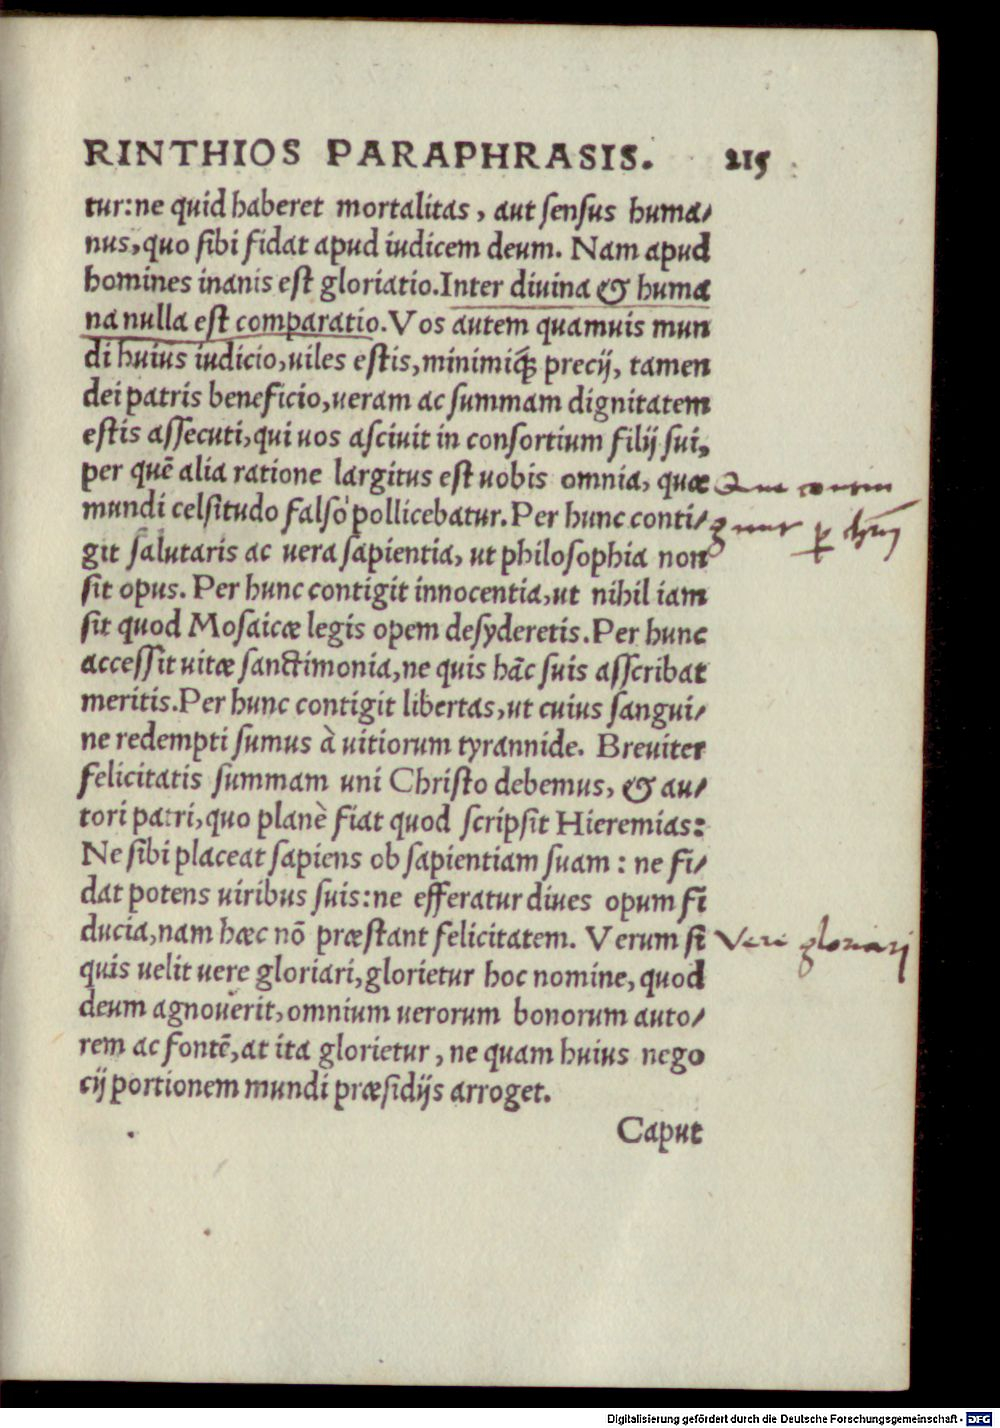 RINTHIOS PARAPHRASIS. 215
tur: ne quid haberet mortalitas, aut sensus huma/
nus, quo sibi fidat apud iudicem deum. Nam apud
homines inanis est gloriatio. Inter diuina & huma
na nulla est comparatio. Vos autem quamuis mun
di huius iudicio, uiles estis, minimiq́; precij, tamen
dei patris beneficio, ueram ac summam dignitatem
estis assecuti, qui uos asciuit in consortium filij sui,
per quē alia ratione largitus est uobis omnia, quæ
mundi celsitudo falsò pollicebatur. Per hunc conti/
git salutaris ac uera sapientia, ut philosophia non
sit opus. Per hunc contigit innocentia, ut nihil iam
sit quod Mosaicæ legis opem desyderetis. Per hunc
accessit uitæ sanctimonia, ne quis hāc suis asscribat
meritis. Per hunc contigit libertas, ut cuius sangui/
ne redempti sumus à uitiorum tyrannide. Breuiter
felicitatis summam uni Christo debemus, & au/
tori patri, quo planè fiat quod scripsit Hieremias:
Ne sibi placeat sapiens ob sapientiam suam: ne fi/
dat potens uiribus suis: ne efferatur diues opum fi
ducia, nam hæc nō præstant felicitatem. Verum si
quis uelit uere gloriari, glorietur hoc nomine, quod
deum agnouerit, omnium uerorum bonorum auto/
rem ac fontē, at ita glorietur, ne quam huius nego
cij portionem mundi præsidijs arroget.
Caput
Vere gloriari
Digitalisierung gefördert durch die Deutsche Forschungsgemeinschaft - DFG